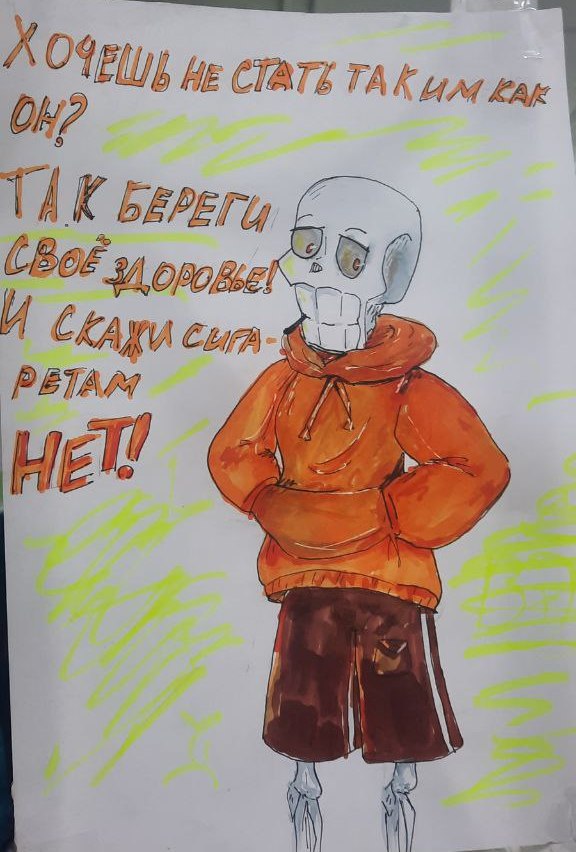 ХОЧЕШЬ НЕ СТАТЬ ТАКИМ КАК
ОН?
ТАК БЕРЕГИ
СВОЁ ЗДОРОВЬЕ!
И СКАЖИ СИГА-
РЕТАМ
НЕТ!